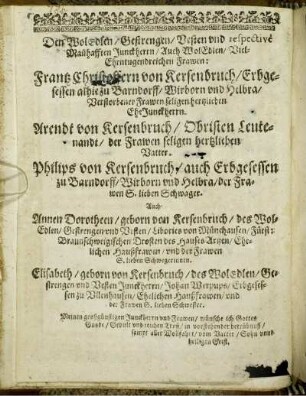 Den WolEdlen / Gestrengen / Vesten und respectivè
Manhafften Junckherrn / Auch WolEdlen / Viel-
Ehrentugendreichen Frawen:
Frantz Christoffern von Kersenbruch / Erbge-
sessen alhie zu Barndorff / Wirborn vnd Helbra /
Verstorbener Frawen seligen hertzlichen
EheJunckherrn.
Arendt von Kersenbruch / Obristen Leute-
nandt / der Frawen seligen hertzlichen
Vatter.
Philips von Kersenbruch / auch Erbgesessen
zu Barndorff / Wirborn vnd Helbra / der Fra-
wen S. lieben Schwager.
Auch
Annen Dorotheen / geborn von Kersenbruch / des Wol-
Edlen / Gestrengen vnd Vesten / Liborius von Münchausen / Fürstl:
Braunschweigischen Drosten des Hauses Artzen / Ehe-
lichen Haußfrawen / vnd der Frawen
S. lieben Schwegerinnen.
Elisabeth / geborn von Kersenbruch / des WolEdlen / Ge-
strengen vnd Vesten Junckherrn / Johan
sessen zu / Ehelichen Haußfrawen / vnd
der Frawen S. lieben Schwester.
Meinen großgünstigen Junckherrn vnd Frawen / wünsche ich Gottes
Gnade / vnd reichen Trost / in vorstehender betrübnüß /
sampt aller Wolfahrt / vom Vatter / Sohn vnnd
heiligen Geist.